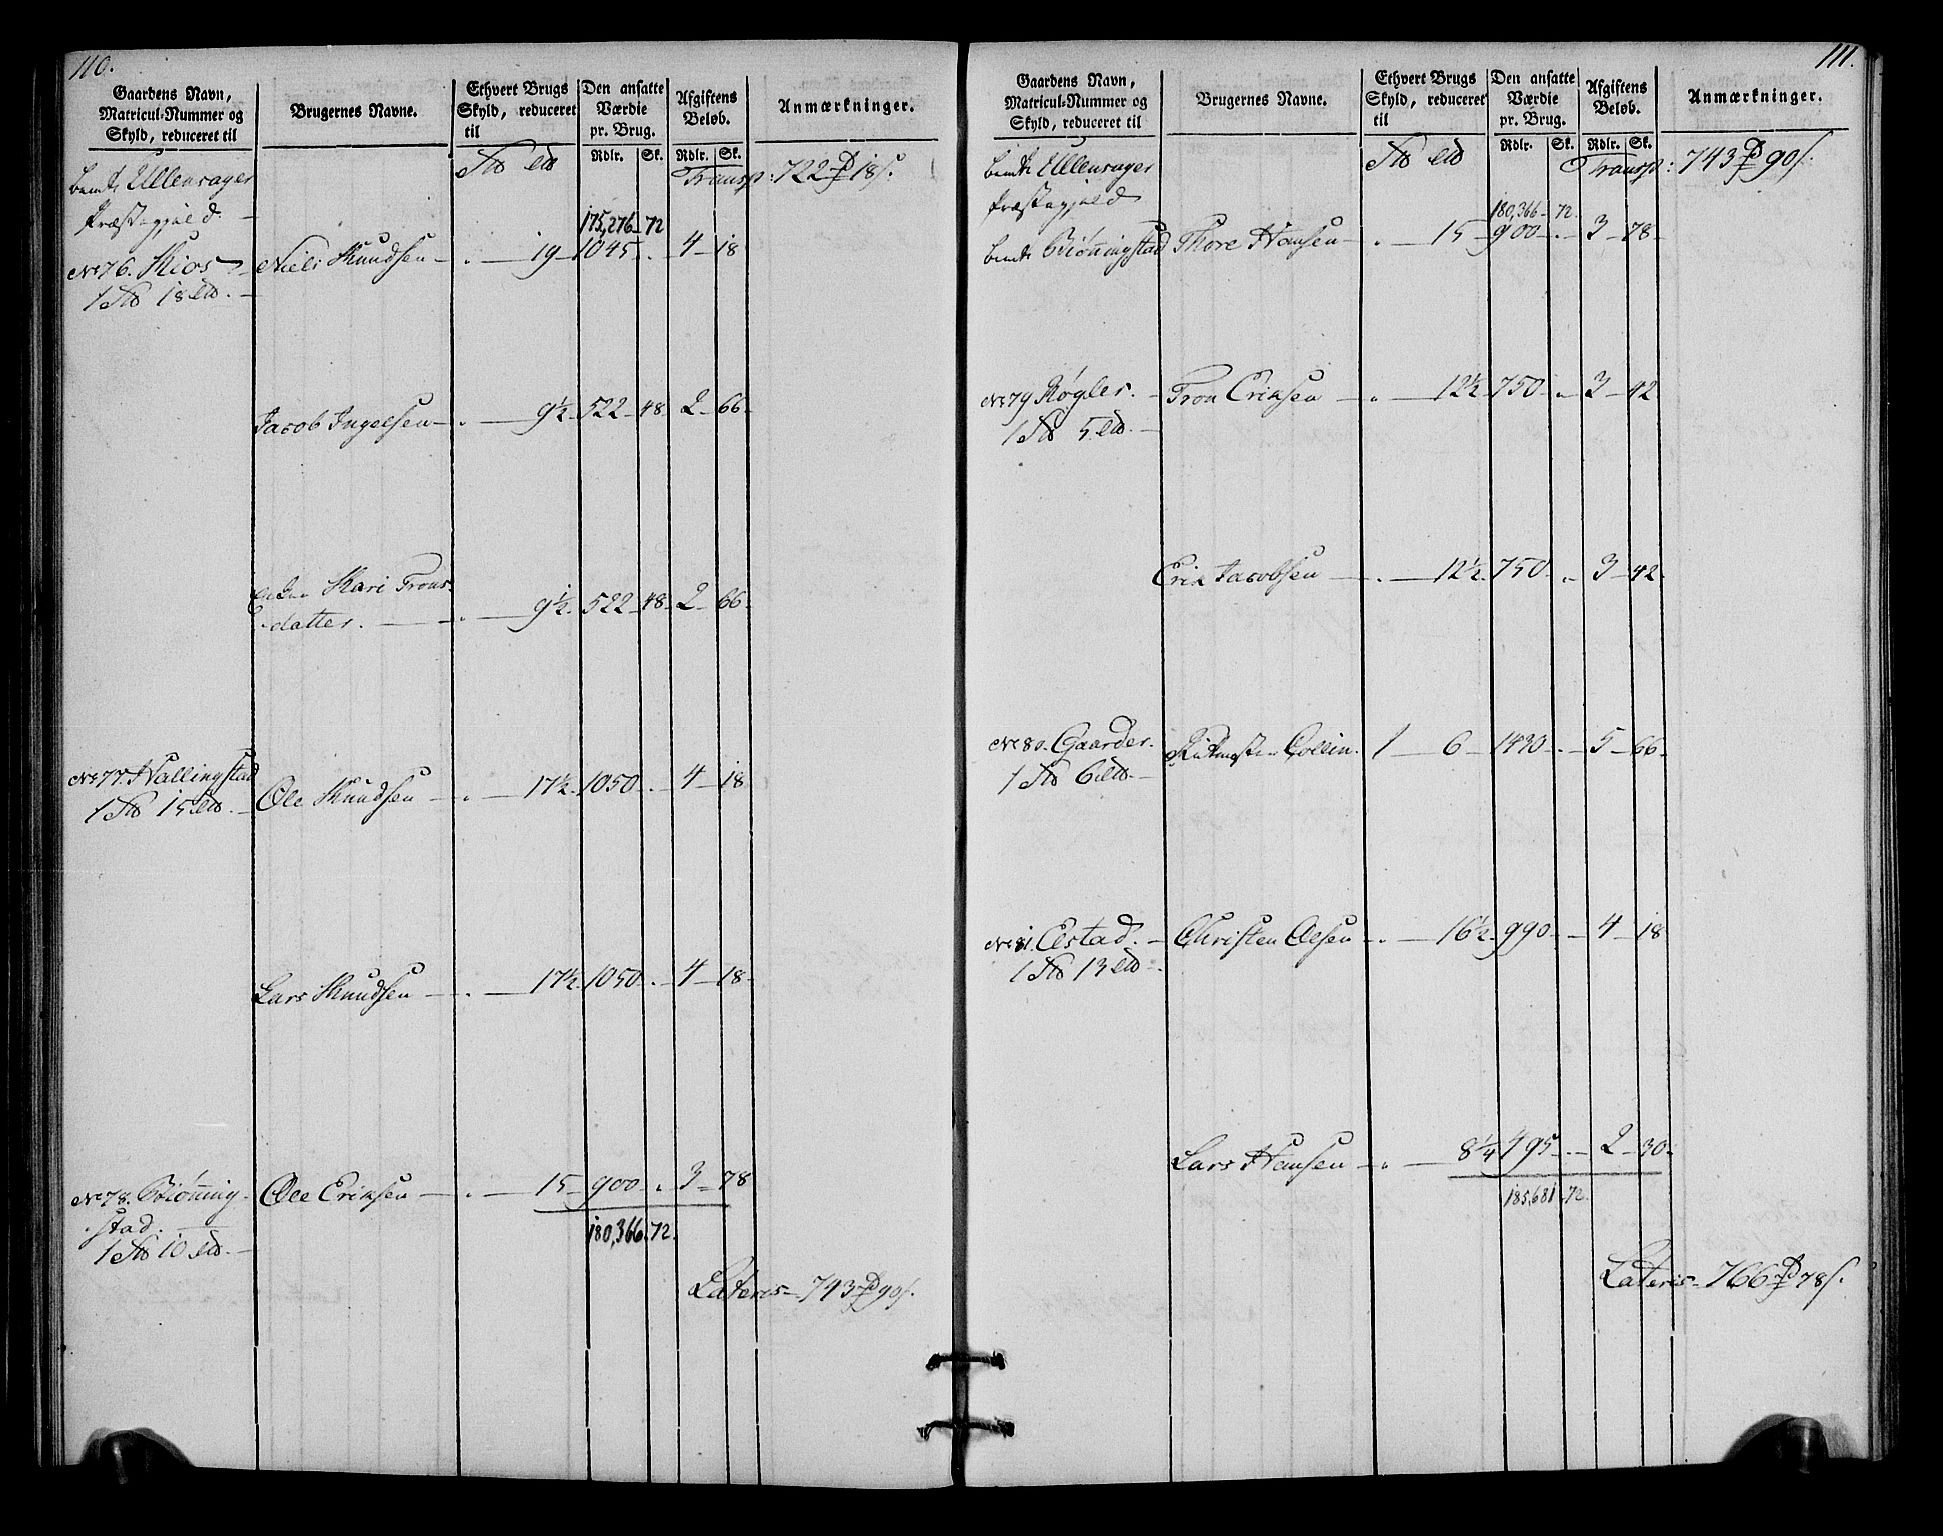 110.
Gaardens Navn, Matricul-Nummer og Skyld, reduceret til | Brugernes Navne. | Ethvert Brugs Skyld, reduceret til | Den ansatte Værdie pr. Brug. Rdlr. Sk. | Afgiftens Beløb. Rdlr. Sk. | Anmærkninger.
bemte Ullensager Transp: 722 18 s.
Præstegjeld. 175,276 72
No 76. Kios Niels Knudsen 19 1045 . 4 18
1 18
Jacob Ingelsen 9½ 522 48 2 66
Kari Trons-
datter. 9½ 522 48 2 66
No 77. Hallingstad
1 15 Ole Knudsen 17½ 1050 . 4 18
Lars Knudsen 17½ 1050 . 4 18
No 78. Biönning- Ole Eriksen 15 900 . 3 78
stad. 180,366. 72.
1 10
Lateris 743 90 s.
111.
Gaardens Navn, Matricul-Nummer og Skyld, reduceret til | Brugernes Navne. | Ethvert Brugs Skyld, reduceret til | Den ansatte Værdie pr. Brug. Rdlr. Sk. | Afgiftens Beløb. Rdlr. Sk. | Anmærkninger.
bemte Ullensager Transp: 743 90 s.
Præstegjeld 180,366 72.
bemte Biönningstad Thore Hansen 15 900 . 3 78
No 79 Røgler. Tron Eriksen 12½ 750 . 3 42
1 5
Erik Jacobsen 12½ 750 . 3 42
No 80. Gaarder. Ritmester Collin. 1 6 1430 . 5 66
1 6
No 81. Elstad. Christen Olsen 16½ 990 . 4 18
1 13
Lars Hansen 8¼ 495 . 2 30
185,681. 72.
Lateris 766 78 s.